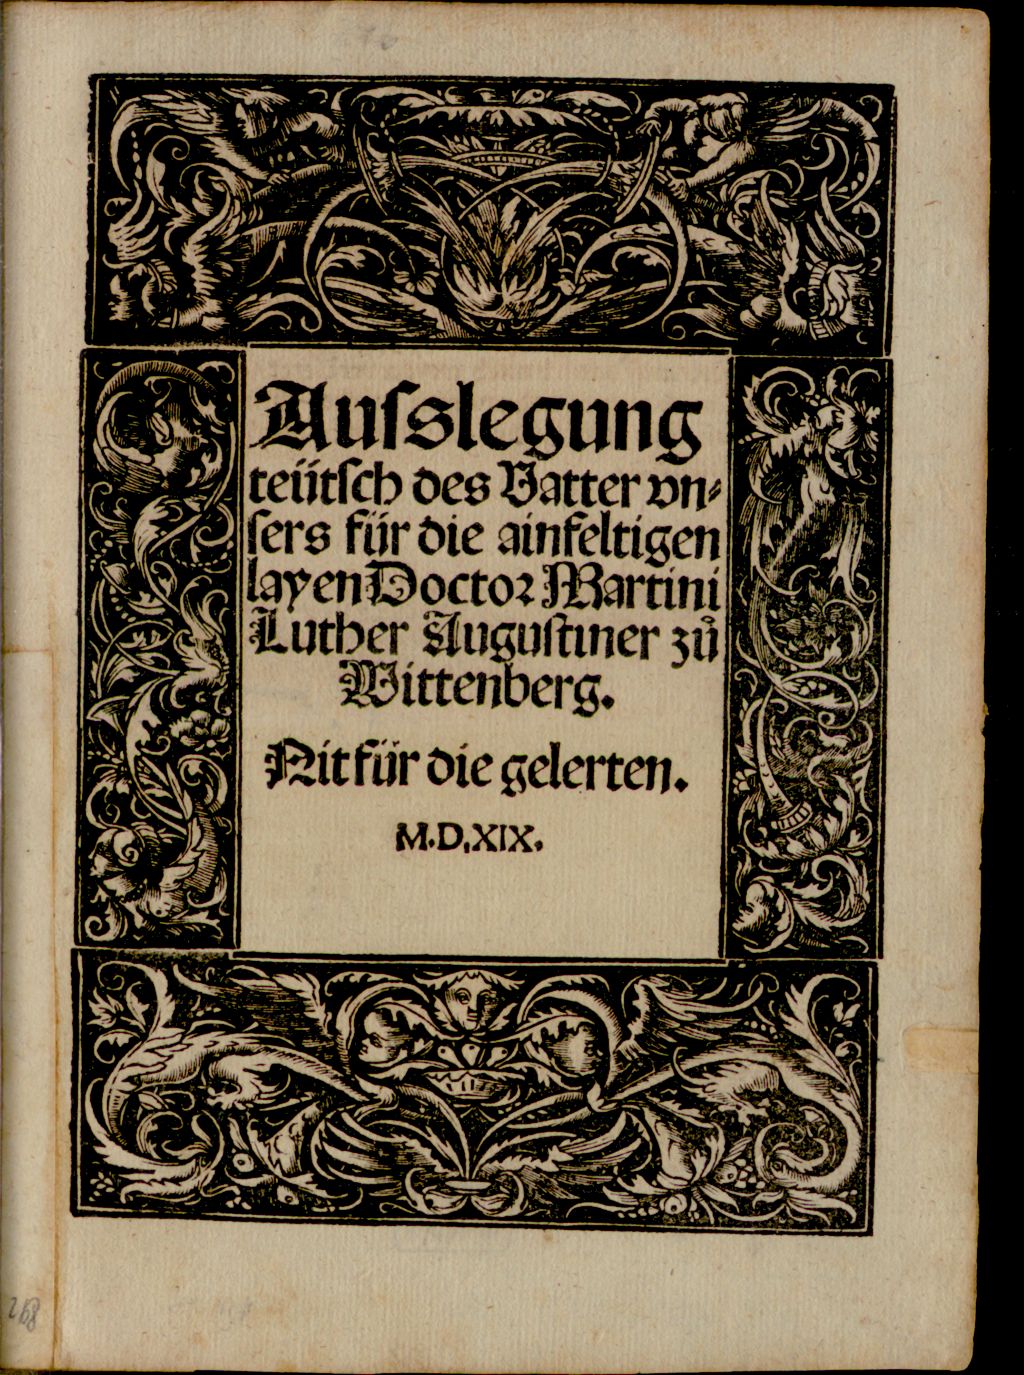 Auſslegung
teütſch des Vatter vn⸗
ſers für die ainfeltigen
layen Doctoꝛ Martini
Luther Auguſtiner zů
Wittenberg.
Nit für die gelerten.
M.D.XIX.